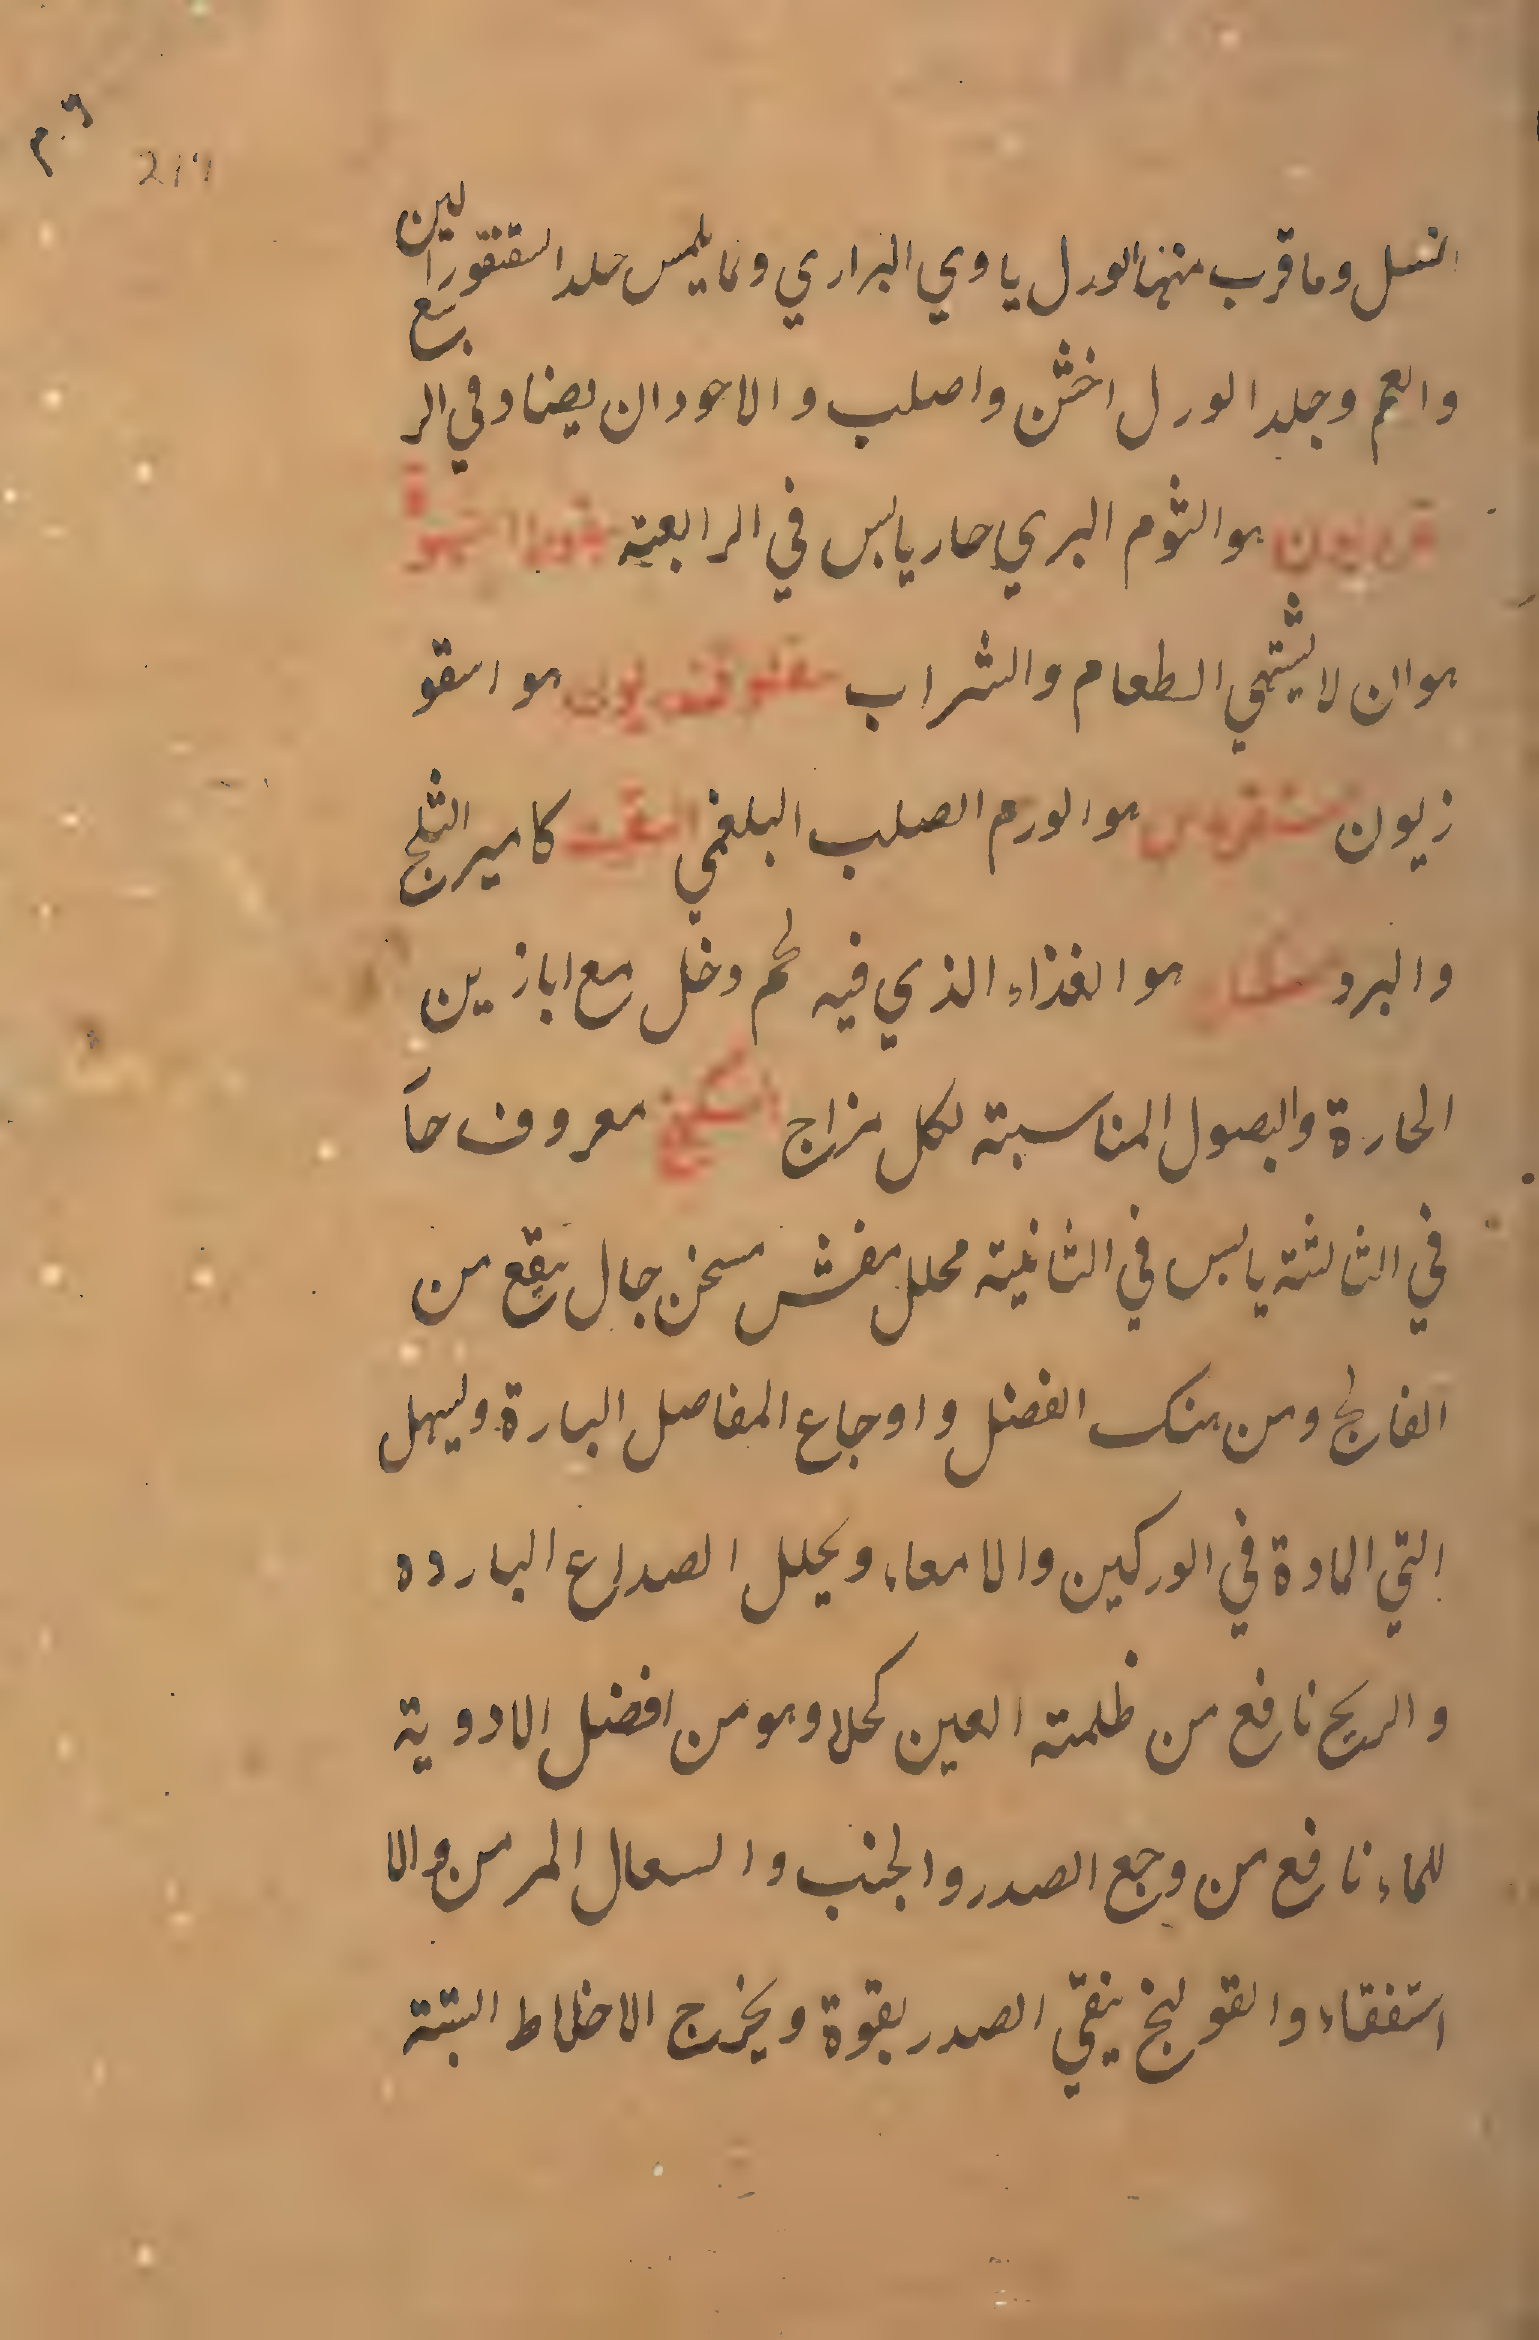 ٢٠٩
217
النسل وما قرب منها الورل ياوي البراري ومما يلمس جلد السقنقور الين
وانعم وجلد الورل اخشن واصلب والاجود ان يصناد في الربيع
هو الثوم البري حار يابس في الرابعة
هو ان لا يشتهي الطعام والشراب سقلوقندريون هو اسقو
زيون سقيروس هو الورم الصلب البلغمي كامير الثلج
والبرد هو الغذاء الذي فيه لحم وخل مع ابازين
الحارة والبصول المناسبة لكل مزاج السكبينج معروف حا
في الثالثة يابس في الثانية محلل مفش مسخن جال ينفع من
الفالج ومن هتك الفضل واوجاع المفاصل الباردة ويسهل
التي المادة في الوركين والامعاء ويحلل الصداع البارد ه
والريح نافع من ظلمة العين كحلا وهو من افضل الادوية
للماء نافع من وجع الصدر والجنب والسعال المزمن والا
استفقاء والقولنج ينقي الصدر بقوة ويخرج الاخلاط النيتة